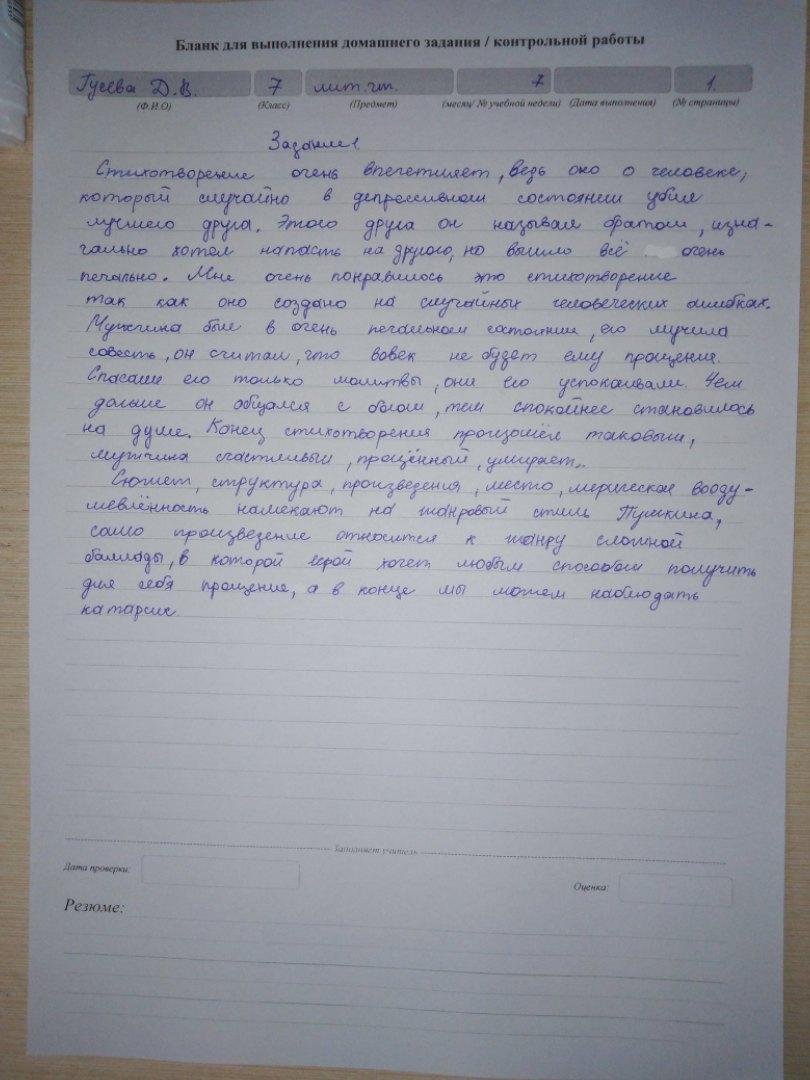 Бланк для выполнения домашнего задания / контрольной работы
Гусева Д.В. 7 лит.чт. 7 1.
(Ф.И.О) (Класс) (Предмет) (месяц/ № учебной недели) (Дата выполнения) (№ страницы)
Задание 1.
Стихотворение очень впечетляет, ведь оно о человеке,
который случайно в депрессивном состоянии убил
лучшего друга. Этого друга он называл братом, изна-
чально хотел напасть на другого, но вышло всё очень
печально. Мне очень понравилось это стихотворение
так как оно создано на случайных человеческих ошибках.
Мужчина был в очень печальном состоянии, его мучила
совесть, он считал, что вовек не будет ему прощения.
Спасали его только молитвы, они его успокаивали. Чем
дальше он общался с богом, тем спокойнее становилось
на душе. Конец стихотворения произошёл таковым,
мужчина счастливый, прощённый, умирает..
Сюжет, структура, произведения, место, лерическая вооду-
шевлённость намекают на жанровый стиль Пушкина,
само произведение относится к жанру сложной
баллады, в которой герой хочет любым способом получить
для себя прощение, а в конце мы можем наблюдать
катарсис
Заполняет учитель
Дата проверки:
Оценка:
Резюме: